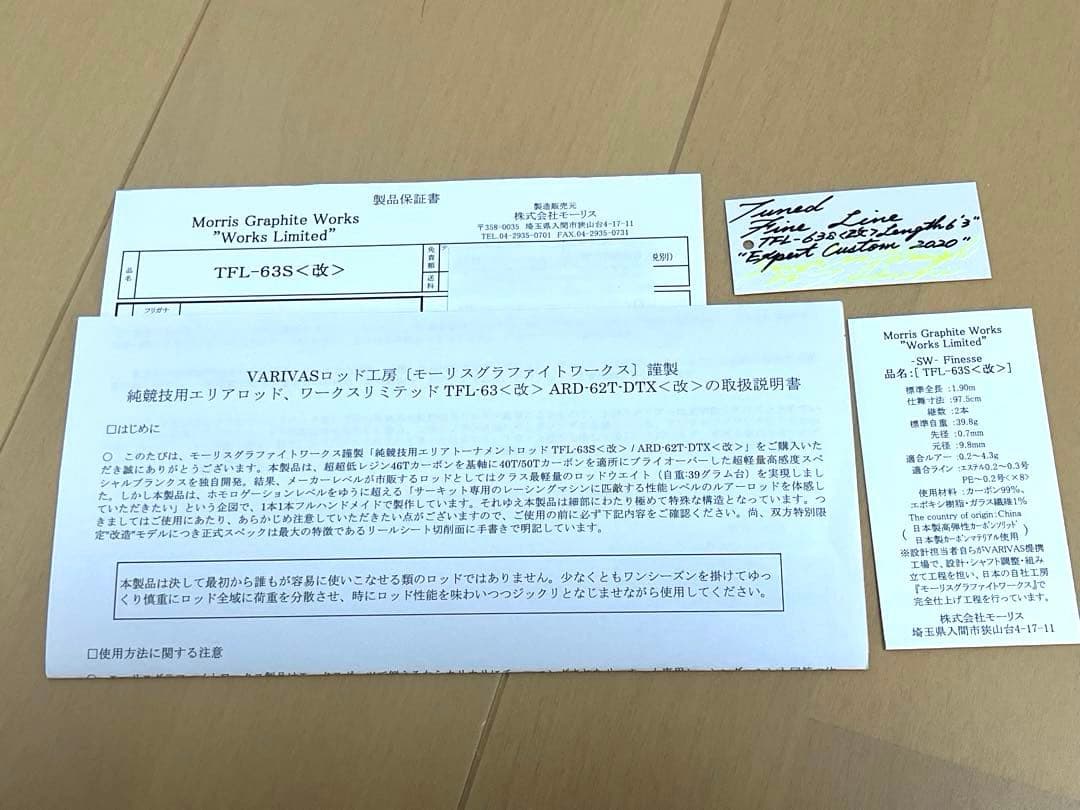 製品保証書
Morris Graphite Works
"Works Limited"
製造販売元
株式会社モーリス
〒358-0035 埼玉県入間市狭山台4-17-11
TEL.04-2935-0701 FAX.04-2935-0731
品名
TFL-63S＜改＞
免責額
送料
税別）
フリガナ
VARIVASロッド工房〔モーリスグラファイトワークス〕謹製
純競技用エリアロッド、ワークスリミテッド TFL-63＜改＞ ARD-62T-DTX＜改＞の取扱説明書
□はじめに
○ このたびは、モーリスグラファイトワークス謹製「純競技用エリアトーナメントロッド TFL-63S＜改＞/ ARD-62T-DTX＜改＞」をご購入いた
だき誠にありがとうございます。本製品は、超超低レジン46Tカーボンを基軸に40T/50Tカーボンを適所にプライオーバーした超軽量高感度スペ
シャルブランクスを独自開発。結果、メーカーレベルが市販するロッドとしてはクラス最軽量のロッドウエイト（自重:39グラム台）を実現しまし
た。しかし本製品は、ホモロゲーションレベルをゆうに超える「サーキット専用のレーシングマシンに匹敵する性能レベルのルアーロッドを体感し
ていただきたい」という企図で、1本1本フルハンドメイドで製作しています。それゆえ本製品は細部にわたり極めて特殊な構造となっています。つ
きましてはご使用にあたり、あらかじめ注意していただきたい点がございますので、ご使用の前に必ず下記内容をご確認ください。尚、双方特別限
定"改造"モデルにつき正式スペックは最大の特徴であるリールシート切削面に手書きで明記しています。
本製品は決して最初から誰もが容易に使いこなせる類のロッドではありません。少なくともワンシーズンを掛けてゆっ
くり慎重にロッド全域に荷重を分散させ、時にロッド性能を味わいつつジックリとなじませながら使用してください。
□使用方法に関する注意
Tuned
Fine Line
TFL-63S<改> Length 6'3"
"Expert Custom 2020"
Morris Graphite Works
"Works Limited"
-SW- Finesse
品名:[ TFL-63S＜改＞]
標準全長 :1.90m
仕舞寸法 :97.5cm
継数 :2本
標準自重 :39.8g
先径 :0.7mm
元径 :9.8mm
適合ルアー :0.2~4.3g
適合ライン :エステル0.2~0.3号
PE~0.2号<×8>
使用材料 :カーボン99%、
エポキシ樹脂・ガラス繊維1%
The country of origin:China
（日本製高弾性カーボンソリッド
日本製カーボンマテリアル使用）
※設計担当者自らがVARIVAS提携
工場で、設計・シャフト調整・組み
立て工程を担い、日本の自社工房
『モーリスグラファイトワークス』で
完全仕上げ工程を行っています。
株式会社モーリス
埼玉県入間市狭山台4-17-11